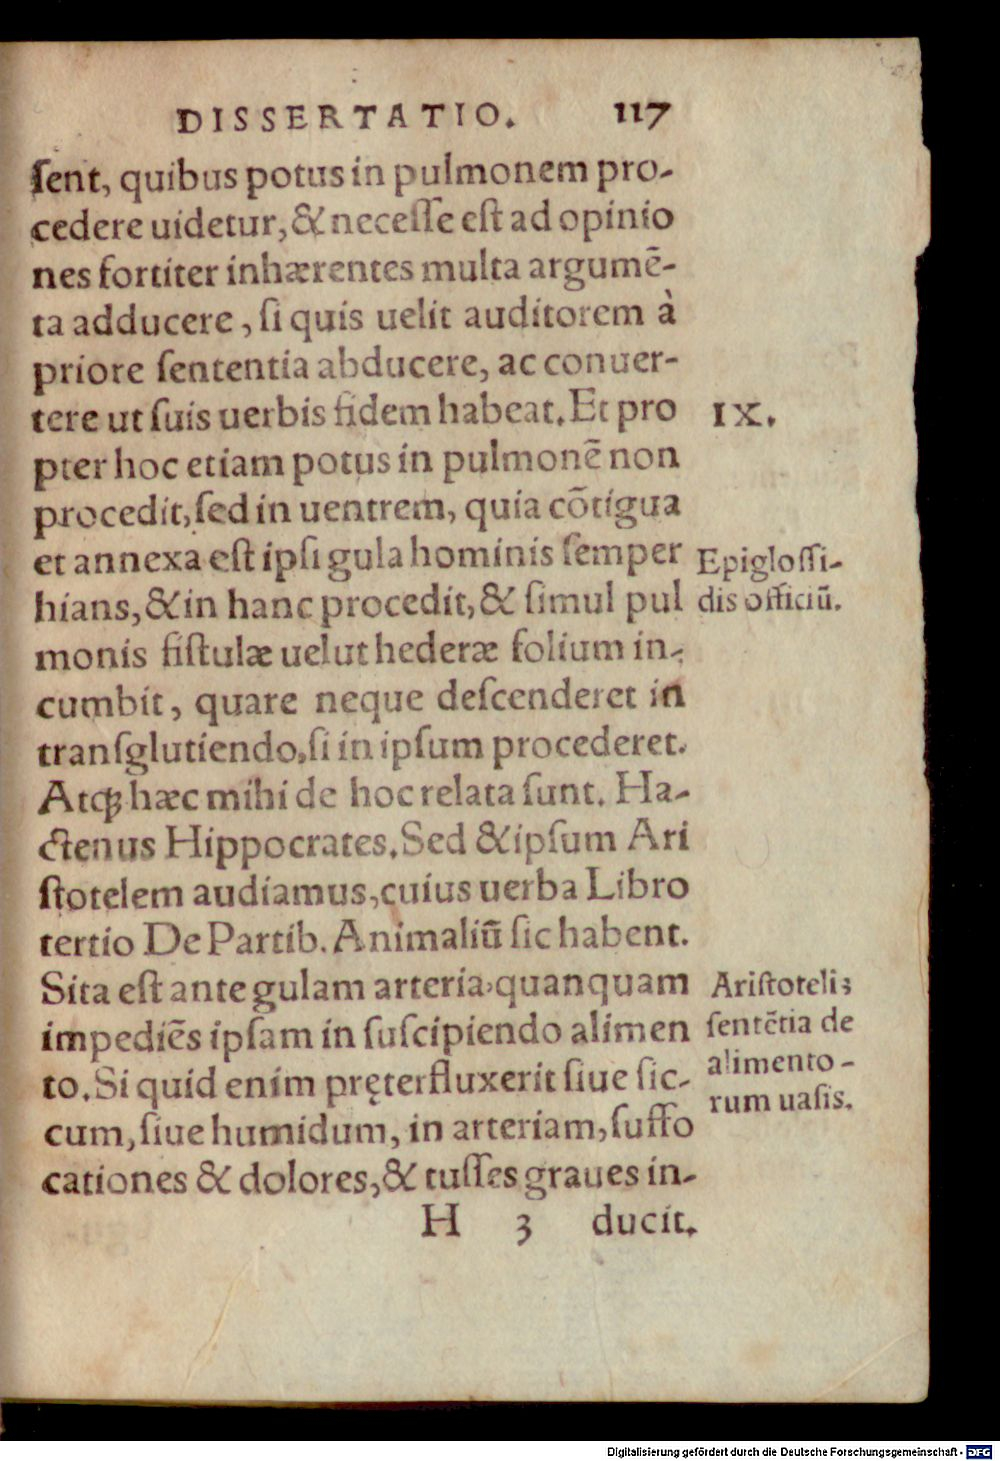 DISSERTATIO. 117
ſent, quibus potus in pulmonem pro-
cedere uidetur, & neceſſe eſt ad opinio
nes fortiter inhærentes multa argumē-
ta adducere, ſi quis uelit auditorem à
priore ſententia abducere, ac conuer-
tere ut ſuis uerbis fidem habeat. Et pro
IX.
pter hoc etiam potus in pulmonē non
procedit, ſed in uentrem, quia cōtigua
et annexa eſt ipſi gula hominis ſemper
hians, & in hanc procedit, & ſimul pul
Epigloſſi-
dis officiū.
monis fiſtulæ uelut hederæ folium in-
cumbit, quare neque deſcenderet in
tranſglutiendo, ſi in ipſum procederet.
Atq́ꝫ hæc mihi de hoc relata ſunt. Ha-
ctenus Hippocrates. Sed & ipſum Ari
ſtotelem audiamus, cuius uerba Libro
tertio De Partib. Animaliū ſic habent.
Sita eſt ante gulam arteria, quanquam
impediēs ipſam in ſuſcipiendo alimen
to. Si quid enim pręterfluxerit ſiue ſic-
cum, ſiue humidum, in arteriam, ſuffo
cationes & dolores, & tuſſes graues in-
Ariſtotelis
ſentētia de
alimento-
rum uaſis.
H 3 ducit.
Digitalisierung gefördert durch die Deutsche Forschungsgemeinschaft - DFG